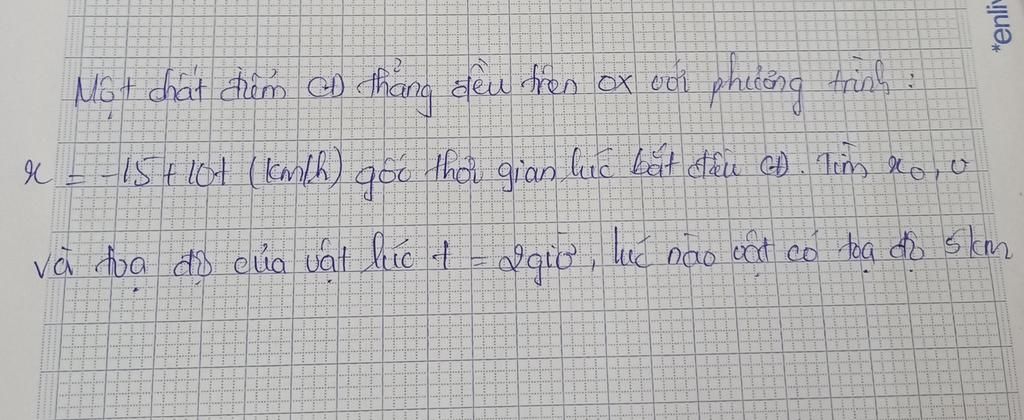 *enli
Một chất điểm CĐ thẳng đều trên ox với phương trình :
x = -15 + 10t (km/h) gốc thời gian lúc bắt đầu CĐ. Tìm x₀, v
và tọa độ của vật lúc t = 2giờ, lúc nào vật có tọa độ 5km